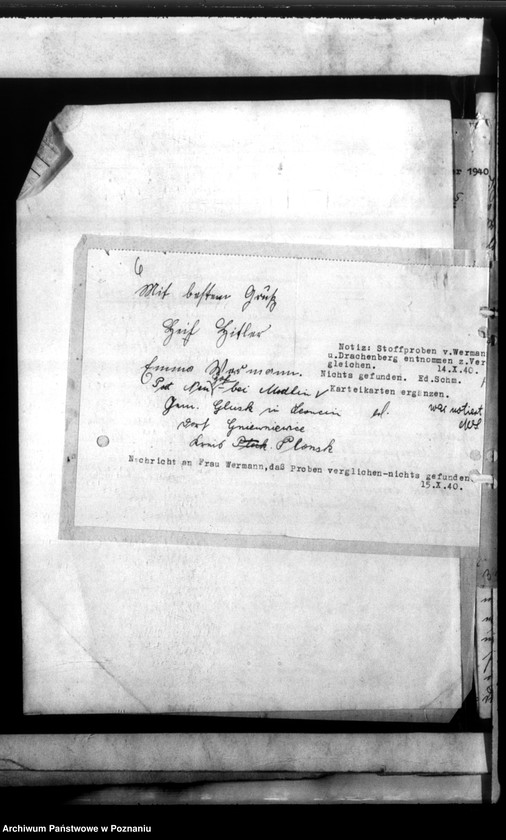 r 1940
6
Mit bestem Gruß
Heil Hitler
Emma Wermann.
Notiz: Stoffproben v.Werman
u.Drachenberg entnommen z.Ver
gleichen. 14.X.40.
Nichts gefunden. Ed.Schm.
Karteikarten ergänzen.
Post Neu bei Modlin
Gem. Glusk in
ed. was notiert
Dorf Gniewniewice
Kreis Plonsk
Nachricht an Frau Wermann,daß Proben verglichen-nichts gefunden.
15.X.40.
Archiwum Państwowe w Poznaniu